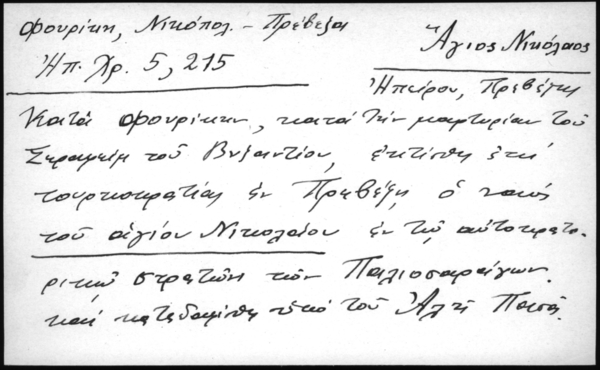 Φουρίκη, Νικόπολ. - Πρέβεζα
Ἠπ. Χρ. 5, 215
Ἅγιος Νικόλαος
Ἠπείρου, Πρεβέζης
Κατὰ Φουρίκην, κατὰ τὴν μαρτυρίαν τοῦ
Σεραφεὶμ τοῦ Βυζαντίου, ἐκτίσθη ἐπὶ
τουρκοκρατίας ἐν Πρεβέζῃ ὁ ναὸς
τοῦ ἁγίου Νικολάου ἐν τῷ αὐτοκρατο-
ρικῷ στρατῶνι τῶν Παλιοσαράγων
καὶ κατεδαφίσθη ὑπὸ τοῦ Ἀλῆ Πασᾶ.